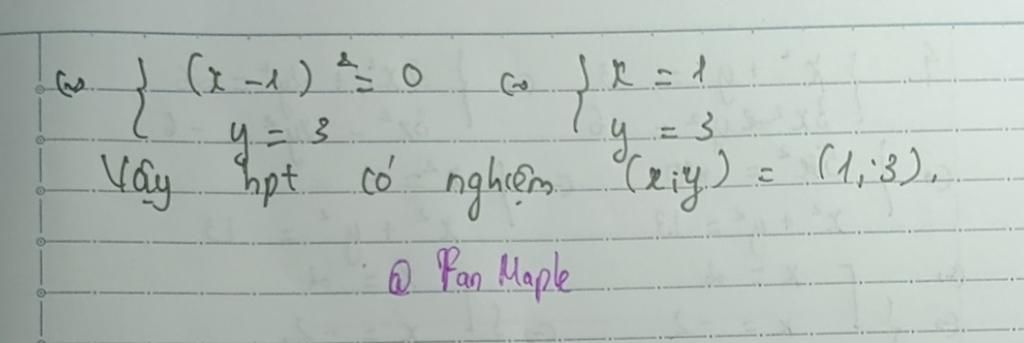 ⇔ { (x - 1)² = 0 ⇔ { x = 1
y = 3 y = 3
Vậy hpt có nghiệm (x;y) = (1;3).
@ Fan Maple